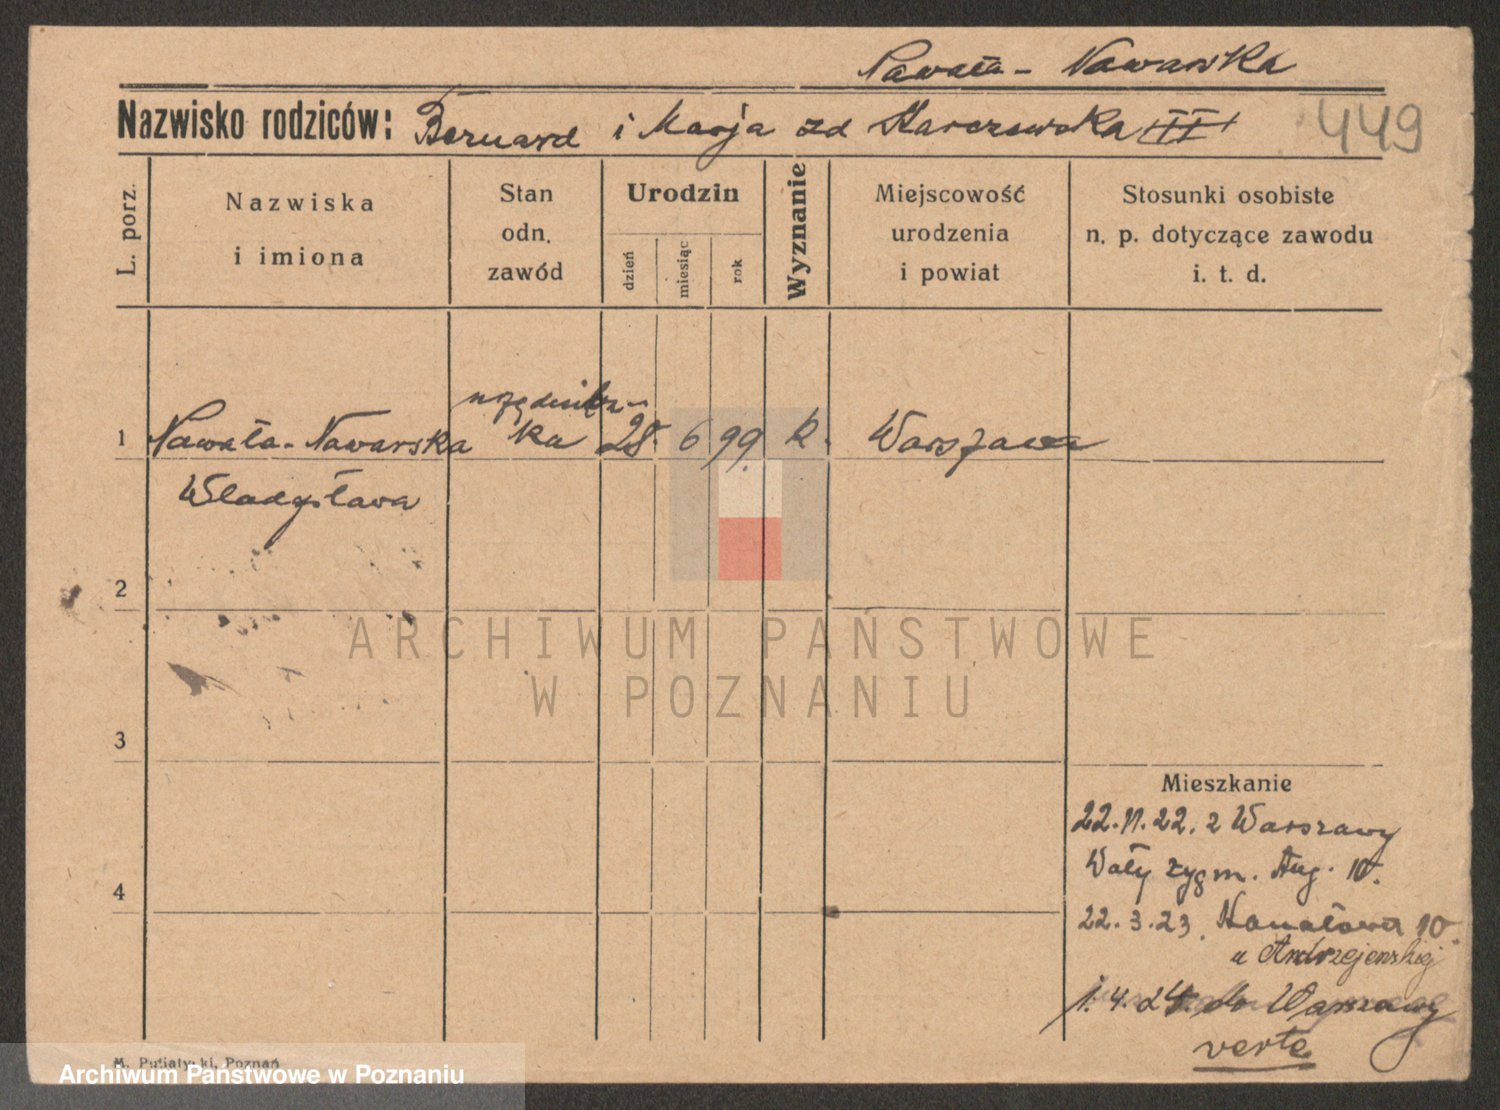 Nawała - Nawarska
Nazwisko rodziców: Bernard i Marja zd Karczewska
449
L. porz.
Nazwiska
i imiona
Stan
odn.
zawód
Urodzin
dzień
miesiąc
rok
Wyznanie
Miejscowość
urodzenia
i powiat
Stosunki osobiste
n. p. dotyczące zawodu
i. t. d.
1 Nawała-Nawarska
Władysława
urzędnicz-
ka 28. 6 99. k. Warszawa
2
3
4
Mieszkanie
22.11.22. z Warszawy
Wały Zygm. Aug. 10.
22.3.23. Kanałowa 10
u Andrzejewskiej
1.4.24. do Warszawy
verte
ARCHIWUM PAŃSTWOWE
W POZNANIU
M. Putiatycki, Poznań
Archiwum Państwowe w Poznaniu